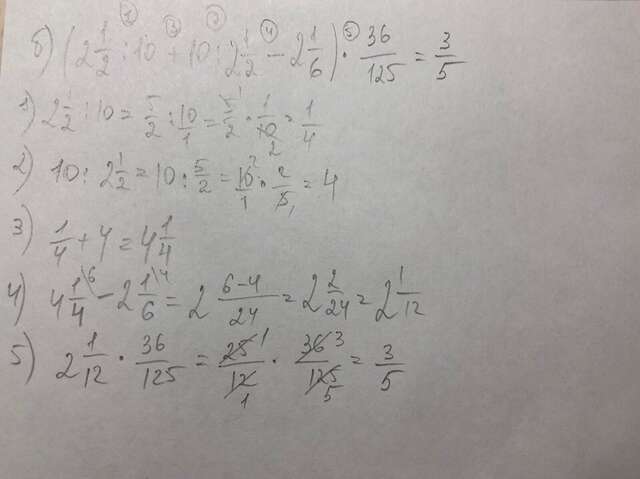 б) (2 1/2 : 10 + 10 : 2 1/2 − 2 1/6) · 36/125 = 3/5
1) 2 1/2 : 10 = 5/2 : 10/1 = 5/2 · 1/10 = 1/4
2) 10 : 2 1/2 = 10 : 5/2 = 10/1 · 2/5 = 4
3) 1/4 + 4 = 4 1/4
4) 4 1/4 \6 − 2 1/6 \4 = 2 (6−4)/24 = 2 2/24 = 2 1/12
5) 2 1/12 · 36/125 = 25/12 · 36/125 = 3/5